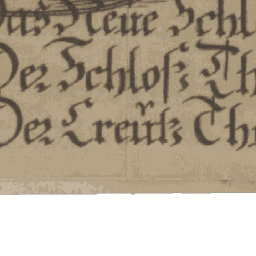 Das Neüe Schl
Der Schloß Th
Der Creütz Thr